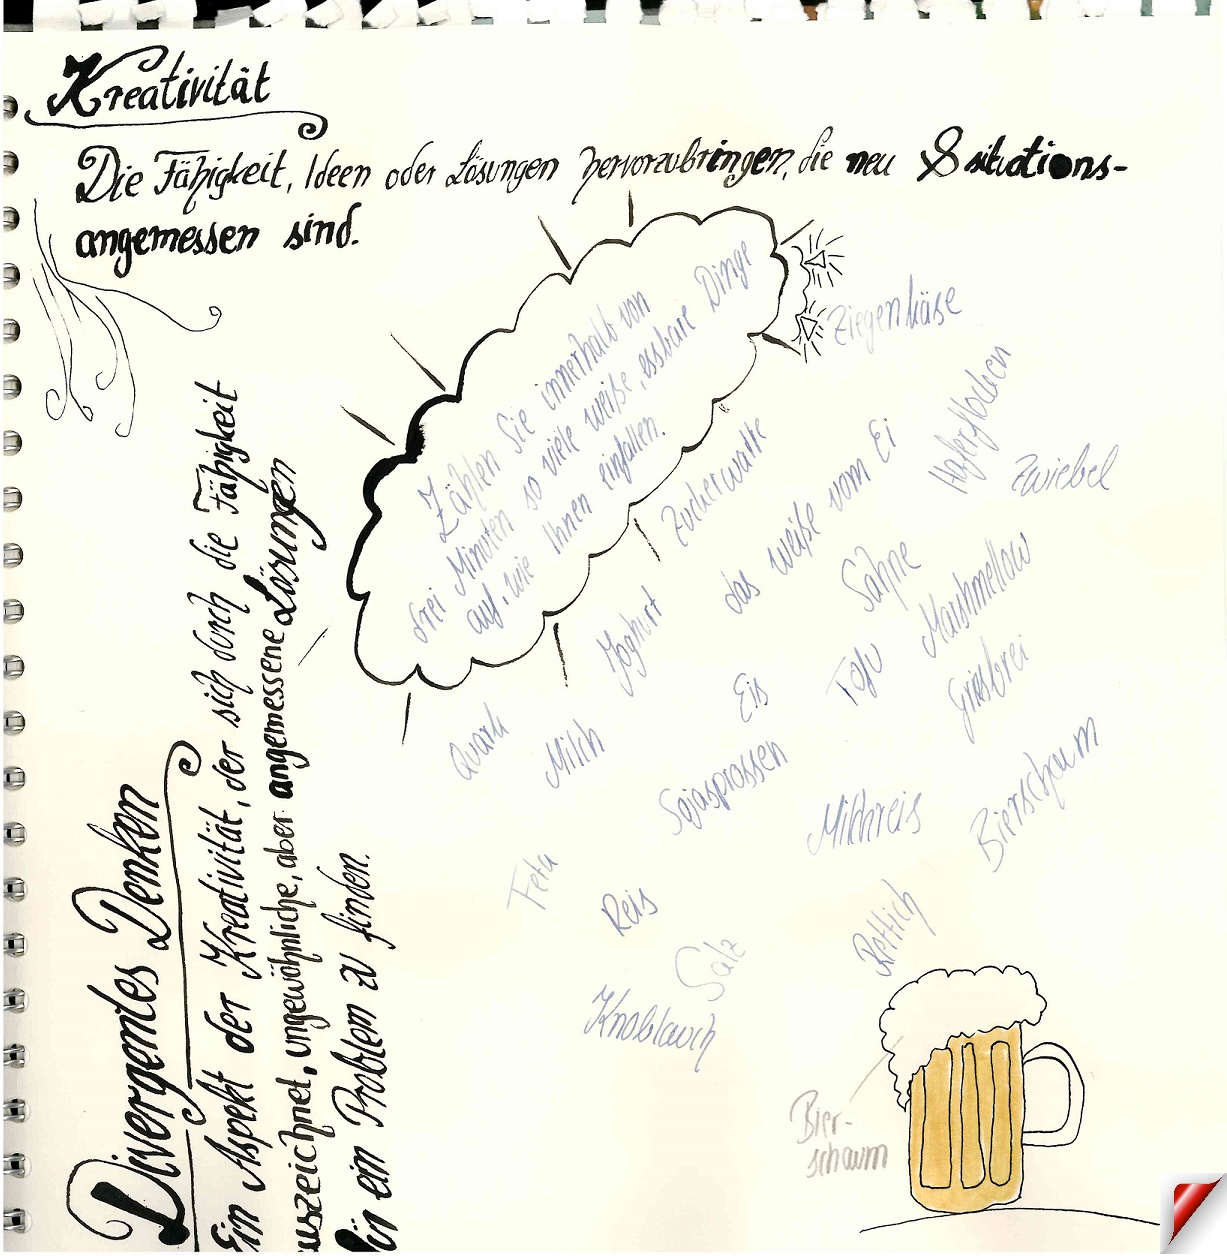 Kreativität
Die Fähigkeit, Ideen oder Lösungen hervorzubringen, die neu & situations-
angemessen sind.
Zählen Sie innerhalb von
drei Minuten so viele weiße, essbare Dinge
auf, wie Ihnen einfallen.
Ziegenkäse
Haferflocken
Zwiebel
Zuckerwatte
das weiße vom Ei
Sahne
Marshmellow
Joghurt
Tofu
Griesbrei
Eis
Quark
Milch
Sojasprossen
Milchreis
Bierschaum
Feta
Reis
Rettich
Salz
Knoblauch
Bier-
schaum
Divergentes Denken
Ein Aspekt der Kreativität, der sich durch die Fähigkeit
auszeichnet, ungewöhnliche, aber angemessene Lösungen
für ein Problem zu finden.